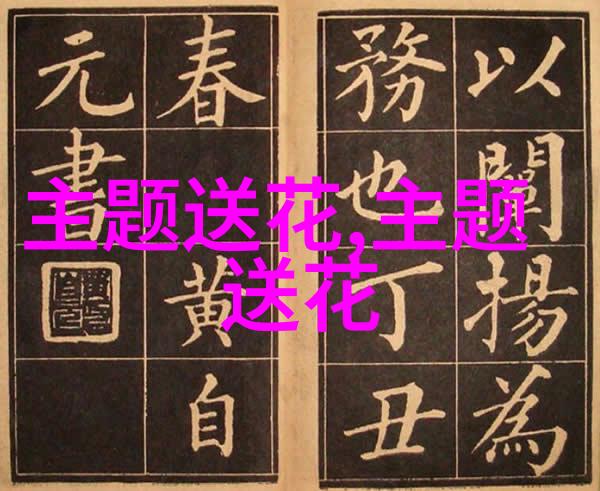 主题送花,主题
送花
以闡揚為
務也丁丑
春黄自
元書